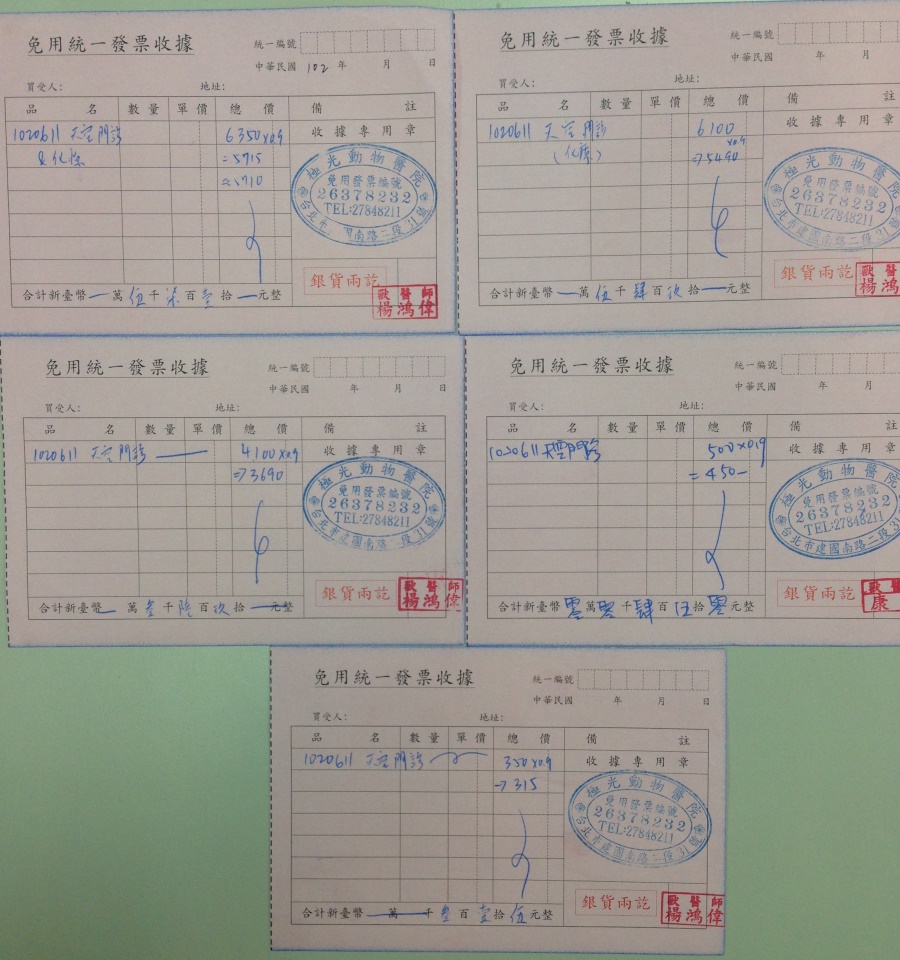 免用統一發票收據
統一編號
中華民國 102 年 月 日
買受人: 地址:
品 名 數量 單價 總 價 備 註
1020611 天空門診 6350x0.9 收據專用章
&化療 =5715
≈5710
極光動物醫院
免用發票編號
26378232
TEL:27848211
台北市 國南路二段31號
銀貨兩訖
合計新臺幣 一 萬 伍 千 柒 百 壹 拾 一 元整
獸醫師
楊鴻偉
免用統一發票收據
統一編號
中華民國 年 月 日
買受人: 地址:
品 名 數量 單價 總 價 備 註
1020611 天空門診 6100 收據專用章
(化療) x0.9
⇒5490
極光動物醫院
免用發票編號
26378232
TEL:27848211
台北市建國南路二段31
銀貨兩訖
合計新臺幣 一 萬 伍 千 肆 百 玖 拾 一 元整
獸醫
楊鴻
免用統一發票收據
統一編號
中華民國 年 月 日
買受人: 地址:
品 名 數量 單價 總 價 備 註
1020611 天空門診 4100x0.9 收據專用章
⇒3690
極光動物醫院
免用發票編號
26378232
TEL:27848211
台北市建國南路 段31號
銀貨兩訖
合計新臺幣 一 萬 叁 千 陸 百 玖 拾 一 元整
獸醫師
楊鴻偉
免用統一發票收據
統一編號
中華民國 年 月 日
買受人: 地址:
品 名 數量 單價 總 價 備 註
1020611 天空門診 500x0.9 收據專用章
=450-
極光動物醫院
免用發票編號
26378232
TEL:27848211
台北市建國南路二段31
銀貨兩訖
合計新臺幣 零 萬 零 千 肆 百 伍 拾 零 元整
獸醫
康
免用統一發票收據
統一編號
中華民國 年 月 日
買受人: 地址:
品 名 數量 單價 總 價 備 註
1020611 天空門診 350x0.9 收據專用章
→315
極光動物醫院
免用發票編號
26378232
TEL:27848211
台北市建國南路二段31號
銀貨兩訖
合計新臺幣 一 萬 一 千 叁 百 壹 拾 伍 元整
獸醫師
楊鴻偉